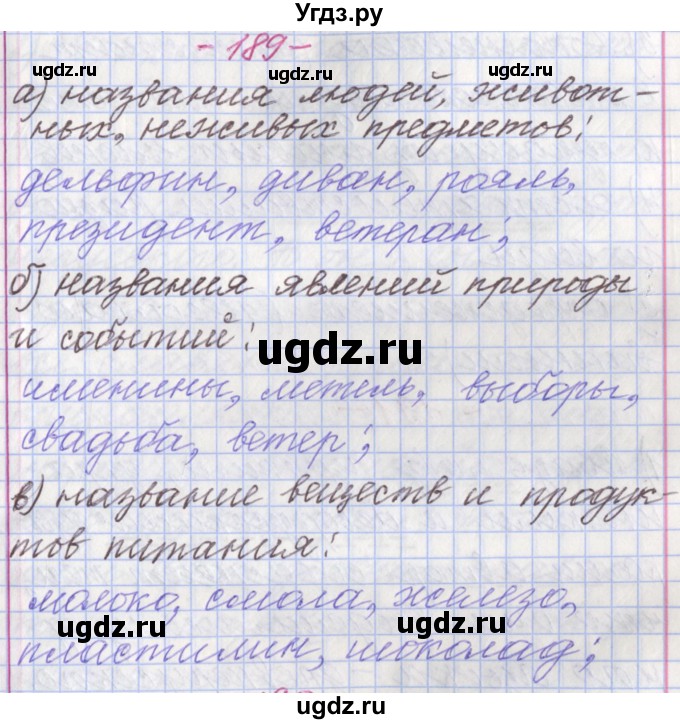 Угдз.ру
- 189 -
ugdz.ru ugdz.ru ugdz.ru
а) названия людей, живот-
ных, неживых предметов:
дельфин, диван, рояль,
президент, ветеран;
б) названия явлений природы
и событий:
ugdz.ru
именины, метель, выборы,
свадьба, ветер;
в) название веществ и продук-
тов питания:
молоко, смола, железо,
ugdz.ru ugdz.ru
пластилин, шоколад;
ugdz.ru